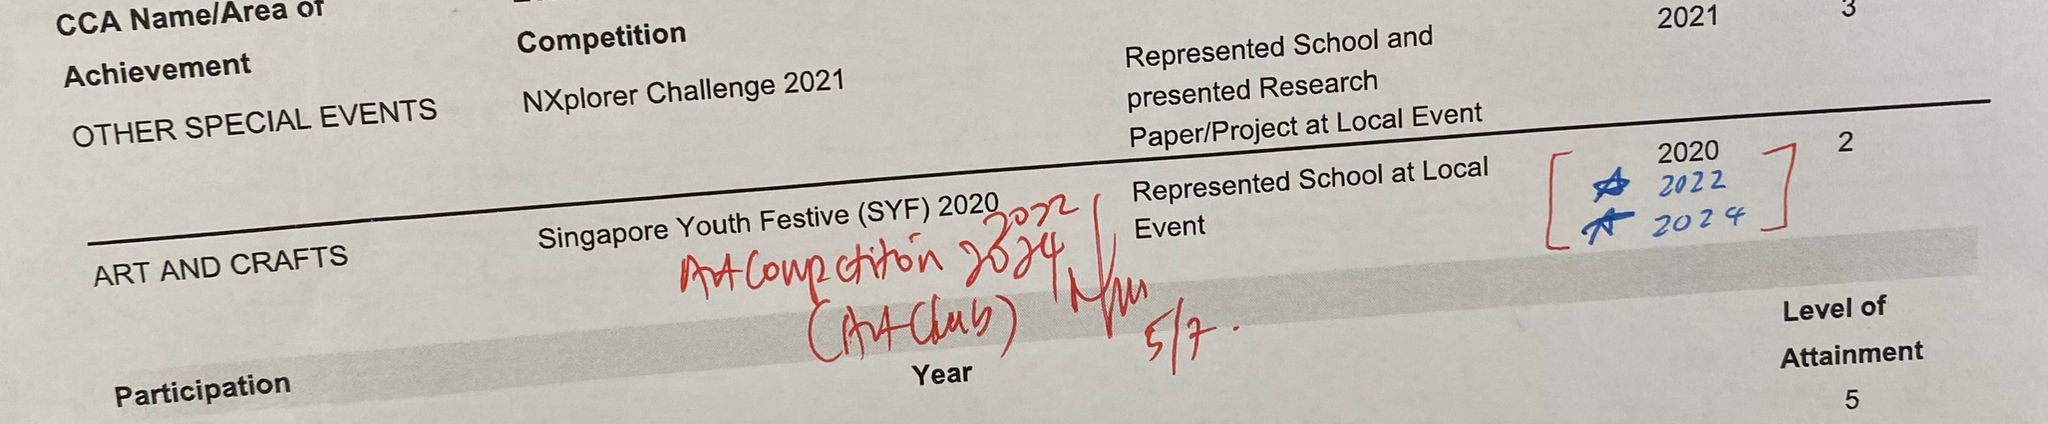 CCA Name/Area of
Achievement
Competition
2021
3
OTHER SPECIAL EVENTS
NXplorer Challenge 2021
Represented School and
presented Research
Paper/Project at Local Event
ART AND CRAFTS
Singapore Youth Festive (SYF) 2020
2022
Art Competition 2024
(Art Club)
5/7.
Represented School at Local
Event
2020
2022
2024
2
Participation
Year
Level of
Attainment
5